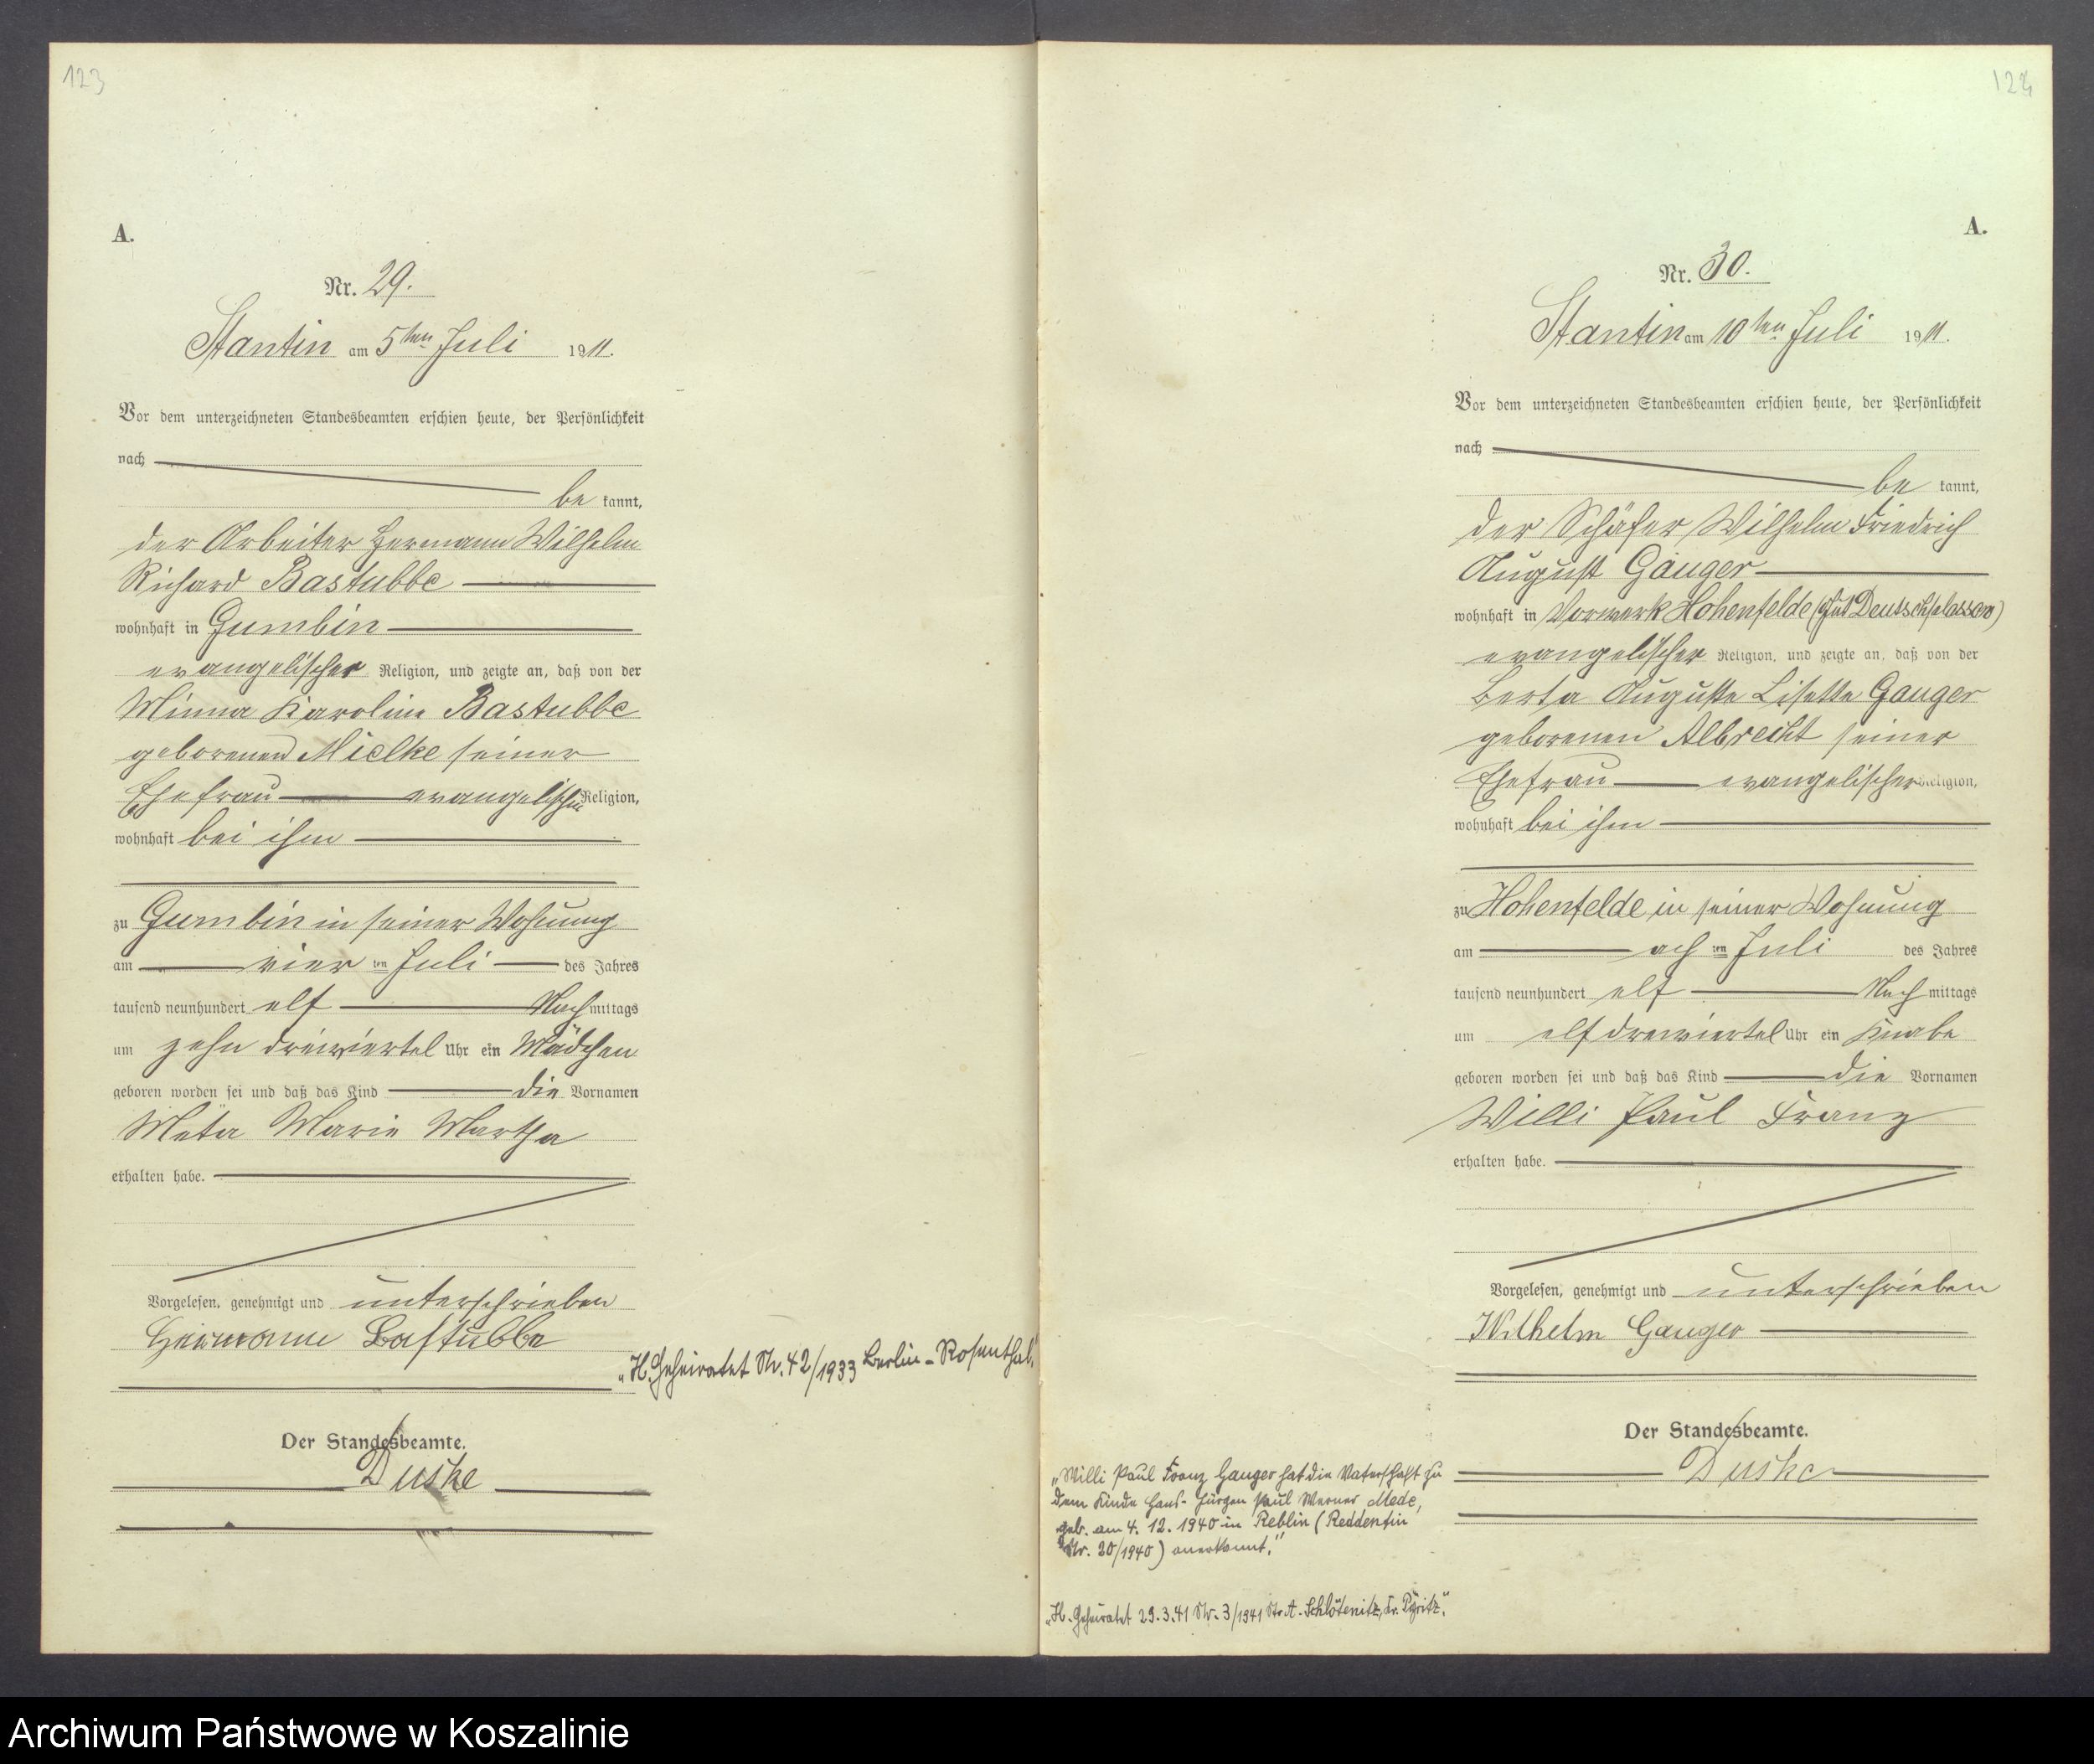 123
A.
Nr. 29.
Stantin am 5ten Juli 1911.
Vor dem unterzeichneten Standesbeamten erschien heute, der Persönlichkeit
nach
be kannt,
der Arbeiter Hermann Wilhelm
Richard Bastubbe
wohnhaft in Gumbin
evangelischer Religion, und zeigte an, daß von der
Minna Karoline Bastubbe
geborenen Mielke seiner
Ehefrau evangelischer Religion,
wohnhaft bei ihm
zu Gumbin in seiner Wohnung
am vier ten Juli des Jahres
tausend neunhundert elf Nach mittags
um zehn dreiviertel Uhr ein Mädchen
geboren worden sei und daß das Kind die Vornamen
Meta Marie Martha
erhalten habe.
Vorgelesen, genehmigt und unterschrieben
Hermann Bastubbe
„H. Geheiratet Nr. 42/1933 Berlin-Rosenthal."
Der Standesbeamte.
Duske
124
A.
Nr. 30.
Stantin am 10ten Juli 1911.
Vor dem unterzeichneten Standesbeamten erschien heute, der Persönlichkeit
nach
be kannt,
der Schäfer Wilhelm Friedrich
August Gauger
wohnhaft in Vorwerk Hohenfelde (Gut Deutsch
evangelischer Religion, und zeigte an, daß von der
Berta Auguste Lisette Gauger
geborenen Albrecht seiner
Ehefrau evangelischer Religion,
wohnhaft bei ihm
zu Hohenfelde in seiner Wohnung
am ach ten Juli des Jahres
tausend neunhundert elf Nach mittags
um elf dreiviertel Uhr ein Knabe
geboren worden sei und daß das Kind die Vornamen
Willi Paul Franz
erhalten habe.
Vorgelesen, genehmigt und unterschrieben
Wilhelm Gauger
Der Standesbeamte.
Duske
„Willi Paul Franz Gauger hat die Vaterschaft zu
dem Kinde Hans-Jürgen Paul Werner Mede,
geb. am 4. 12. 1940 in Reblin (Reddentin
Nr. 20/1940) anerkannt."
„H. Geheiratet 29.3.41 Nr. 3/1941 St.A. Schlötenitz, Kr. Pyritz."
Archiwum Państwowe w Koszalinie